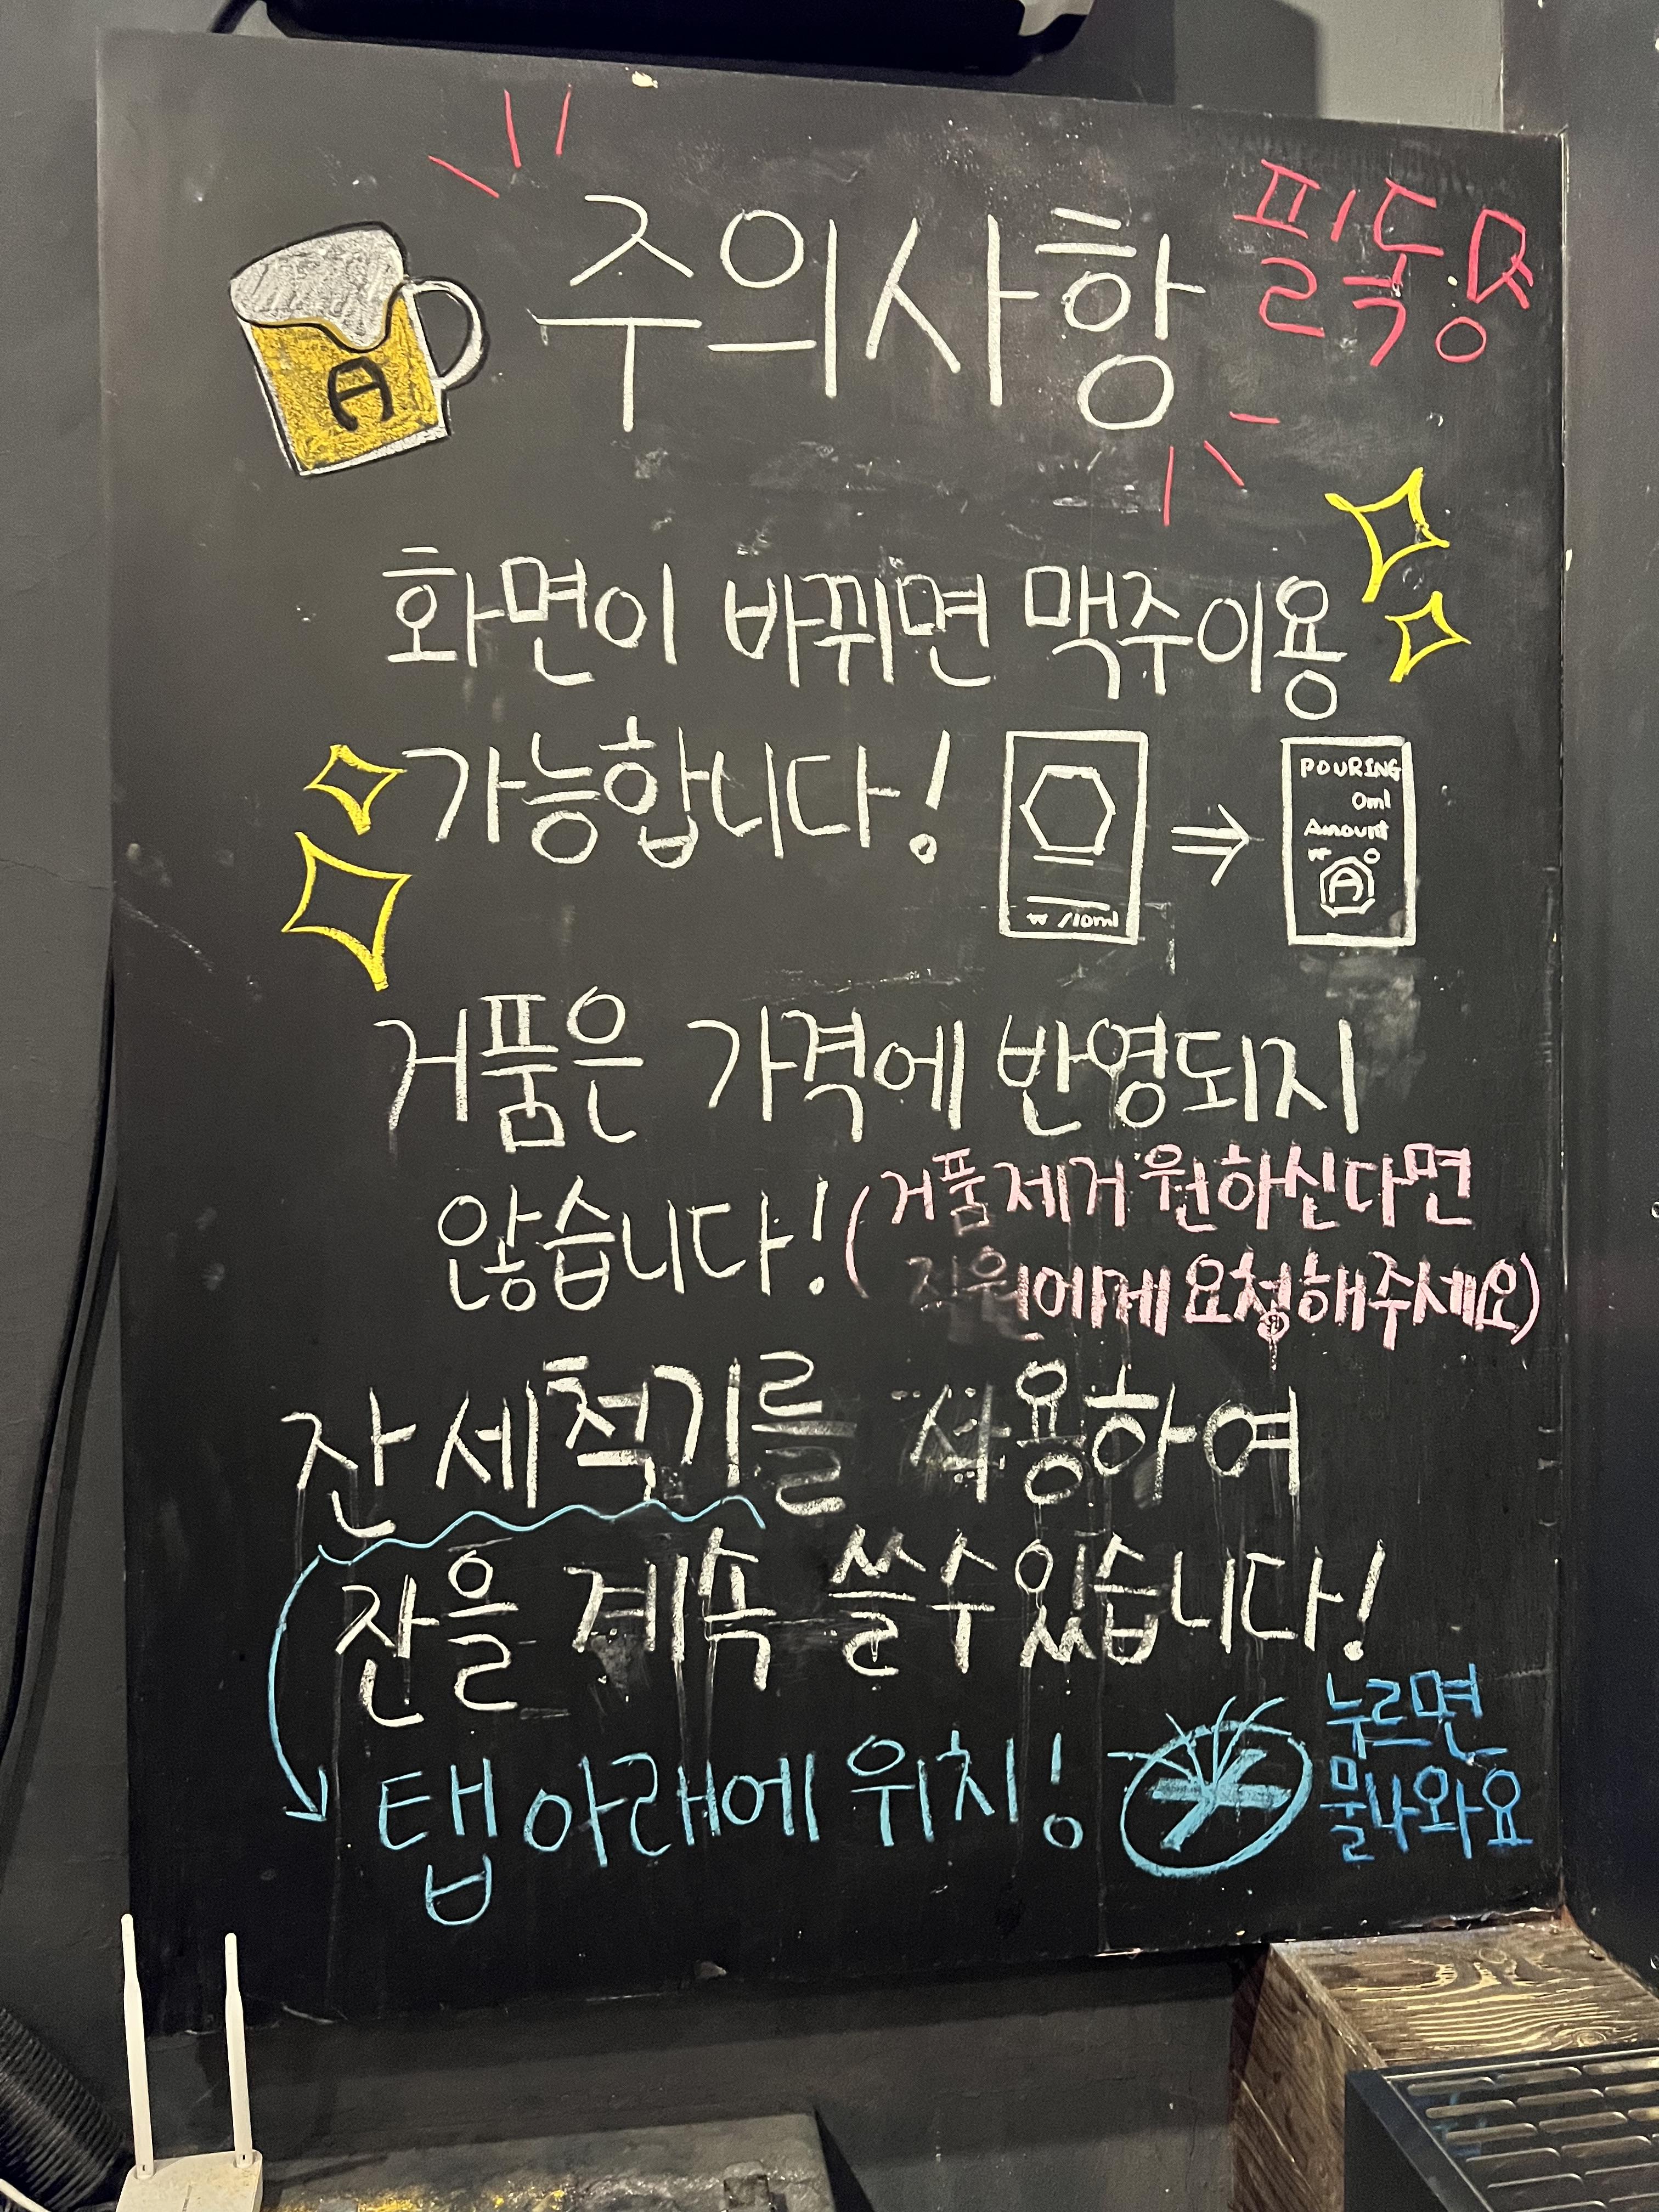 주의사항
필독.!
A
화면이 바뀌면 맥주이용
가능합니다!
₩ /10ml
POURING
0ml
Amount
₩ 0
A
거품은 가격에 반영되지
않습니다!
(거품제거 원하신다면
직원에게 요청해주세요)
잔세척기를 사용하여
잔을 계속 쓸수있습니다!
탭 아래에 위치!
누르면
물나와요